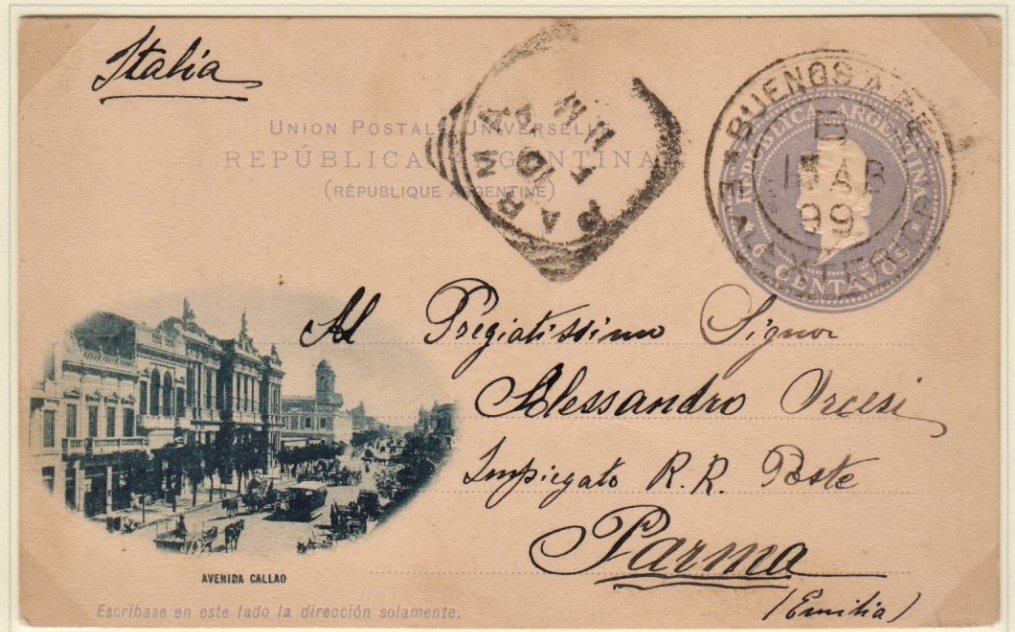 Italia
UNION POSTALE UNIVERSELLE
REPÚBLICA ARGENTINA
(RÉPUBLIQUE ARGENTINE)
PARMA
BUENOS AIRES
B
AB
99
REPUBLICA ARGENTINA
6 CENTAVOS
Al Pregiatissimo Signor
Alessandro Orcesi
Impiegato R. R. Poste
Parma
(Emilia)
AVENIDA CALLAO
Escribase en este lado la dirección solamente.